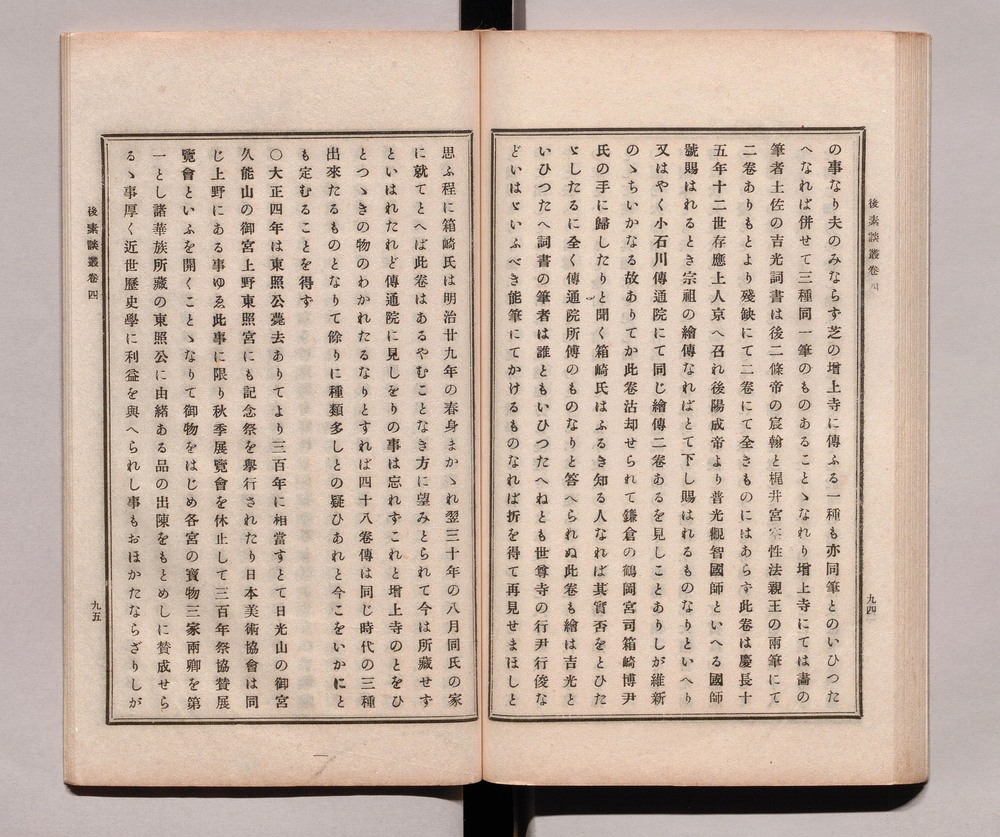 後素談叢卷四
の事なり夫のみならす芝の增上寺に傳ふる一種も亦同筆とのいひつた
へなれば併せて三種同一筆のものあることゝなれり增上寺にては畵の
筆者土佐の吉光詞書は後二條帝の宸翰と梶井宮 性法親王の兩筆にて
二卷ありもとより殘缺にて二卷にて全きものにはあらす此卷は慶長十
五年十二世存應上人京へ召れ後陽成帝より普光觀智國師といへる國師
號賜はれるとき宗祖の繪傳なればとて下し賜はれるものなりといへり
又はやく小石川傳通院にて同じ繪傳二卷あるを見しことありしが維新
のゝちいかなる故ありてか此卷沽却せられて鎌倉の鶴岡宮司箱崎博尹
氏の手に歸したりと聞く箱崎氏はふるき知る人なれば其實否をとひた
ゞしたるに全く傳通院所傳のものなりと答へられぬ此卷も繪は吉光と
いひつたへ詞書の筆者は誰ともいひつたへねとも世尊寺の行尹行俊な
どいはゞいふべき能筆にてかけるものなれば折を得て再見せまほしと
九四
思ふ程に箱崎氏は明治廿九年の春身まかゝれ翌三十年の八月同氏の家
に就てとへば此卷はあるやむことなき方に望みとられて今は所藏せず
といはれたれど傳通院に見しをりの事は忘れずこれと增上寺のとをひ
とつゝきの物のわかれたるなりとすれば四十八卷傳は同じ時代の三種
出來たるものとなりて餘りに種類多しとの疑ひあれと今こをいかにと
も定むることを得す
〇大正四年は東照公薨去ありてより三百年に相當すとて日光山の御宮
久能山の御宮上野東照宮にも記念祭を擧行されたり日本美術協會は同
じ上野にある事ゆゑ此事に限り秋季展覽會を休止して三百年祭協贊展
覽會といふを開くことゝなりて御物をはじめ各宮の寶物三家兩卿を第
一とし諸華族所藏の東照公に由緖ある品の出陳をもとめしに贊成せら
るゝ事厚く近世歷史學に利益を與へられし事もおほかたならざりしが
後素談叢卷四
九五